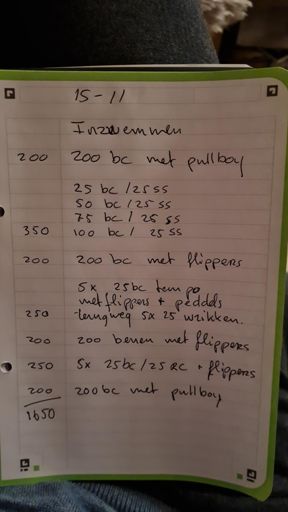 15-11
Inzwemmen
200 200 bc met pullboy
25 bc / 25 ss
50 bc / 25 ss
75 bc / 25 ss
350 100 bc / 25 ss
200 200 bc met flippers
5x 25bc tempo
met flippers + peddels
250 terugweg 5x 25 wrikken.
200 200 benen met flippers
250 5x 25bc / 25 rc + flippers
200 200bc met pullboy
1650